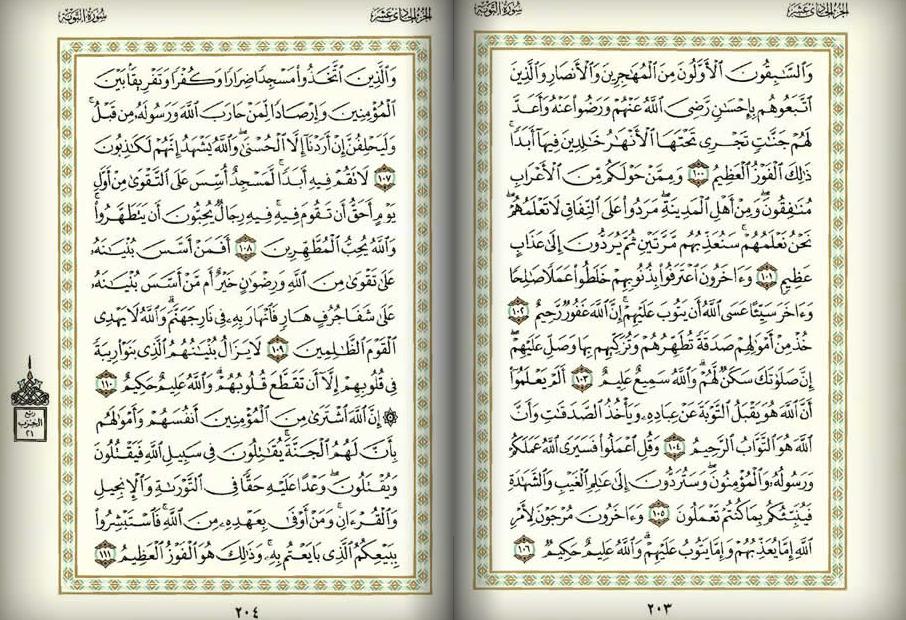 الجزء الحادي عشر
سورة التوبة
وَالسَّٰبِقُونَ الْأَوَّلُونَ مِنَ الْمُهَٰجِرِينَ وَالْأَنصَارِ وَالَّذِينَ
اتَّبَعُوهُم بِإِحْسَٰنٍ رَّضِيَ اللَّهُ عَنْهُمْ وَرَضُوا عَنْهُ وَأَعَدَّ
لَهُمْ جَنَّٰتٍ تَجْرِي تَحْتَهَا الْأَنْهَٰرُ خَٰلِدِينَ فِيهَا أَبَدًا ۚ
ذَٰلِكَ الْفَوْزُ الْعَظِيمُ ١٠٠ وَمِمَّنْ حَوْلَكُم مِّنَ الْأَعْرَابِ
مُنَٰفِقُونَ ۖ وَمِنْ أَهْلِ الْمَدِينَةِ ۖ مَرَدُوا عَلَى النِّفَاقِ لَا تَعْلَمُهُمْ ۖ
نَحْنُ نَعْلَمُهُمْ ۚ سَنُعَذِّبُهُم مَّرَّتَيْنِ ثُمَّ يُرَدُّونَ إِلَىٰ عَذَابٍ
عَظِيمٍ ١٠١ وَءَاخَرُونَ اعْتَرَفُوا بِذُنُوبِهِمْ خَلَطُوا عَمَلًا صَٰلِحًا
وَءَاخَرَ سَيِّئًا عَسَى اللَّهُ أَن يَتُوبَ عَلَيْهِمْ ۚ إِنَّ اللَّهَ غَفُورٌ رَّحِيمٌ ١٠٢
خُذْ مِنْ أَمْوَٰلِهِمْ صَدَقَةً تُطَهِّرُهُمْ وَتُزَكِّيهِم بِهَا وَصَلِّ عَلَيْهِمْ ۖ
إِنَّ صَلَوٰتَكَ سَكَنٌ لَّهُمْ ۗ وَاللَّهُ سَمِيعٌ عَلِيمٌ ١٠٣ أَلَمْ يَعْلَمُوا
أَنَّ اللَّهَ هُوَ يَقْبَلُ التَّوْبَةَ عَنْ عِبَادِهِ وَيَأْخُذُ الصَّدَقَٰتِ وَأَنَّ
اللَّهَ هُوَ التَّوَّابُ الرَّحِيمُ ١٠٤ وَقُلِ اعْمَلُوا فَسَيَرَى اللَّهُ عَمَلَكُمْ
وَرَسُولُهُ وَالْمُؤْمِنُونَ ۖ وَسَتُرَدُّونَ إِلَىٰ عَٰلِمِ الْغَيْبِ وَالشَّهَٰدَةِ
فَيُنَبِّئُكُم بِمَا كُنتُمْ تَعْمَلُونَ ١٠٥ وَءَاخَرُونَ مُرْجَوْنَ لِأَمْرِ
اللَّهِ إِمَّا يُعَذِّبُهُمْ وَإِمَّا يَتُوبُ عَلَيْهِمْ ۗ وَاللَّهُ عَلِيمٌ حَكِيمٌ ١٠٦
٢٠٣
الجزء الحادي عشر
سورة التوبة
وَالَّذِينَ اتَّخَذُوا مَسْجِدًا ضِرَارًا وَكُفْرًا وَتَفْرِيقًا بَيْنَ
الْمُؤْمِنِينَ وَإِرْصَادًا لِّمَنْ حَارَبَ اللَّهَ وَرَسُولَهُ مِن قَبْلُ ۚ
وَلَيَحْلِفُنَّ إِنْ أَرَدْنَا إِلَّا الْحُسْنَىٰ ۖ وَاللَّهُ يَشْهَدُ إِنَّهُمْ لَكَٰذِبُونَ
١٠٧ لَا تَقُمْ فِيهِ أَبَدًا ۚ لَّمَسْجِدٌ أُسِّسَ عَلَى التَّقْوَىٰ مِنْ أَوَّلِ
يَوْمٍ أَحَقُّ أَن تَقُومَ فِيهِ ۚ فِيهِ رِجَالٌ يُحِبُّونَ أَن يَتَطَهَّرُوا ۚ
وَاللَّهُ يُحِبُّ الْمُطَّهِّرِينَ ١٠٨ أَفَمَنْ أَسَّسَ بُنْيَٰنَهُ
عَلَىٰ تَقْوَىٰ مِنَ اللَّهِ وَرِضْوَٰنٍ خَيْرٌ أَم مَّنْ أَسَّسَ بُنْيَٰنَهُ
عَلَىٰ شَفَا جُرُفٍ هَارٍ فَانْهَارَ بِهِ فِي نَارِ جَهَنَّمَ ۗ وَاللَّهُ لَا يَهْدِي
الْقَوْمَ الظَّٰلِمِينَ ١٠٩ لَا يَزَالُ بُنْيَٰنُهُمُ الَّذِي بَنَوْا رِيبَةً
فِي قُلُوبِهِمْ إِلَّا أَن تَقَطَّعَ قُلُوبُهُمْ ۗ وَاللَّهُ عَلِيمٌ حَكِيمٌ ١١٠
۞ إِنَّ اللَّهَ اشْتَرَىٰ مِنَ الْمُؤْمِنِينَ أَنفُسَهُمْ وَأَمْوَٰلَهُم
بِأَنَّ لَهُمُ الْجَنَّةَ ۚ يُقَٰتِلُونَ فِي سَبِيلِ اللَّهِ فَيَقْتُلُونَ
وَيُقْتَلُونَ ۖ وَعْدًا عَلَيْهِ حَقًّا فِي التَّوْرَىٰةِ وَالْإِنجِيلِ
وَالْقُرْءَانِ ۚ وَمَنْ أَوْفَىٰ بِعَهْدِهِ مِنَ اللَّهِ ۚ فَاسْتَبْشِرُوا
بِبَيْعِكُمُ الَّذِي بَايَعْتُم بِهِ ۚ وَذَٰلِكَ هُوَ الْفَوْزُ الْعَظِيمُ ١١١
ربع
الحزب
٢١
٢٠٤